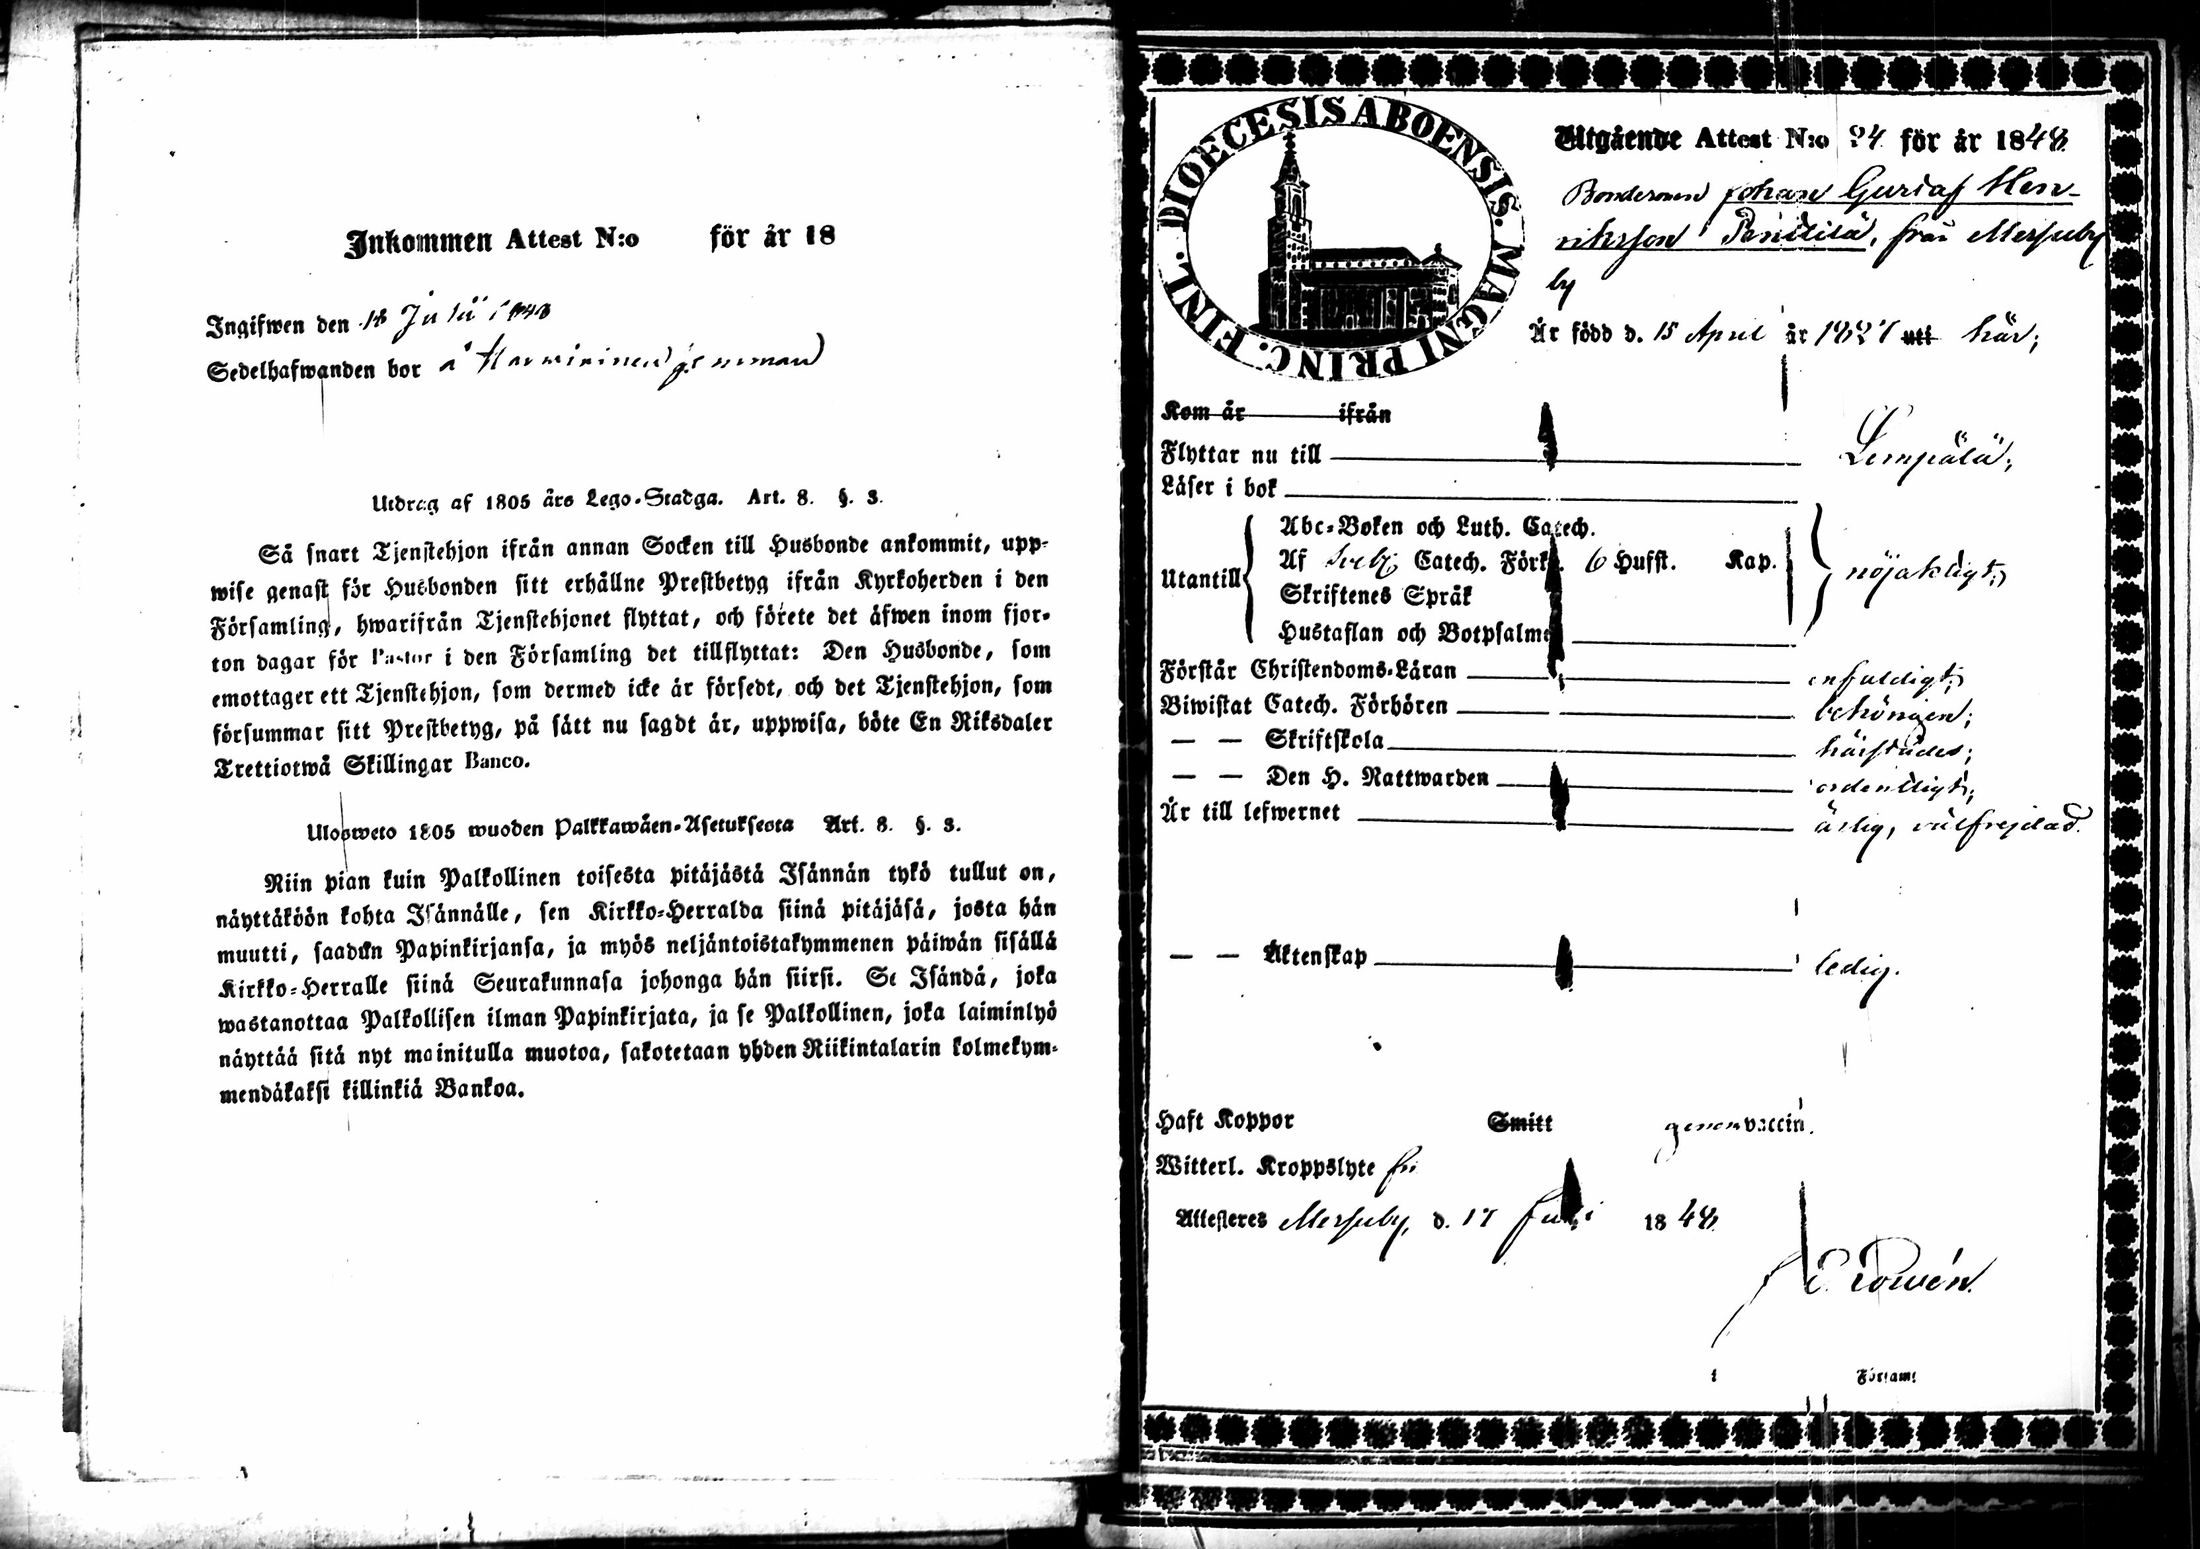 Inkommen Attest N:o för år 18
Ingifwen den 18 Julii 1848
Sedelhafwanden bor å
Utdrag af 1805 års Lego-Stadga. Art. 8. §. 3.
Så snart Tjenstehjon ifrån annan Socken till Husbonde ankommit, upp-
wise genast för Husbonden sitt erhållne Prestbetyg ifrån Kyrkoherden i den
Församling, hwarifrån Tjenstehjonet flyttat, och förete det äfwen inom fjor-
ton dagar för Pastor i den Församling det tillflyttat: Den Husbonde, som
emottager ett Tjenstehjon, som dermed icke är försedt, och det Tjenstehjon, som
försummar sitt Prestbetyg, på sätt nu sagdt är, uppwisa, böte En Riksdaler
Trettiotwå Skillingar Banco.
Ulosweto 1805 wuoden Palkkawäen-Asetuksesta Art. 8. §. 3.
Niin pian kuin Palkollinen toisesta pitäjästä Isännän tykö tullut on,
näyttäköön kohta Isännälle, sen Kirkko-Herralda siinä pitäjäsä, josta hän
muutti, saadun Papinkirjansa, ja myös neljäntoistakymmenen päiwän sisällä
Kirkko-Herralle siinä Seurakunnasa johonga hän siirsi. Se Isändä, joka
wastanottaa Palkollisen ilman Papinkirjata, ja se Palkollinen, joka laiminlyö
näyttää sitä nyt mainitulla muotoa, sakotetaan yhden Riikintalarin kolmekym-
mendäkaksi killinkiä Bankoa.
DIOECESIS ABOENSIS. MAGNI PRINC. FINL.
Utgående Attest N:o 24 för år 1848
Bondesonen Johan Gustaf Hen-
riksson Penttilä, från Mersuby
by
Är född d. 15 April år 1827 utt här;
Kom år ifrån
Flyttar nu till Lempälä;
Läser i bok
Utantill
Abc-Boken och Luth. Catech.
Af Sveb. Catech. Förkl. 6 Hufst. Kap.
Skriftenes Språk
Hustaflan och Botpsalme
nöjaktigt;
Förstår Christendoms-Läran enfaldigt;
Biwistat Catech. Förhören behörigen;
— — Skriftskola härstädes;
— — Den H. Nattwarden ordentligt;
Är till lefwernet ärlig, välfrejdad.
— — Äktenskap ledig.
Haft Koppor Smitt genom vaccin.
Witterl. Kroppslyte fri
Attesteres Mersuby, d. 17 Juli 1848
i Församl